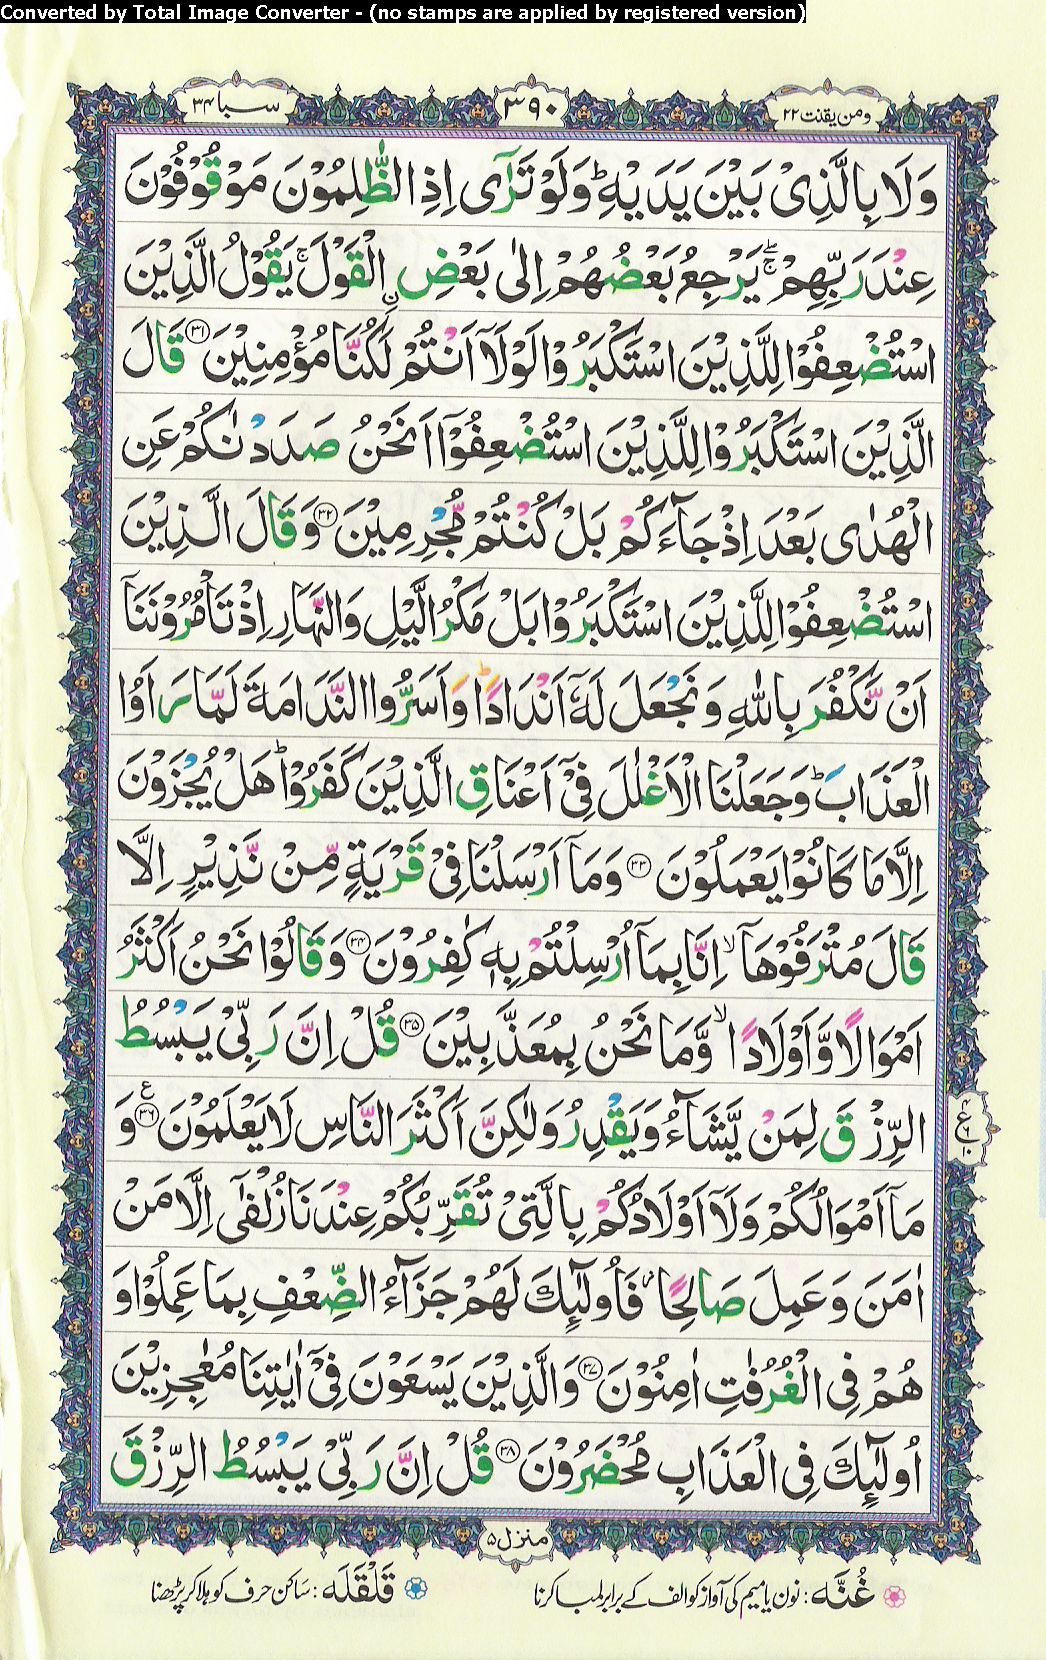 Converted by Total Image Converter - (no stamps are applied by registered version)
ومن يقنت ٢٢
٣٩٠
سبا ٣٤
وَلَا بِالَّذِىْ بَيْنَ يَدَيْهِ ؕ وَلَوْ تَرٰٓى اِذِ الظّٰلِمُوْنَ مَوْقُوْفُوْنَ
عِنْدَ رَبِّهِمْ ۖۚ يَرْجِعُ بَعْضُهُمْ اِلٰى بَعْضِ ۨالْقَوْلَ ۚ يَقُوْلُ الَّذِيْنَ
اسْتُضْعِفُوْا لِلَّذِيْنَ اسْتَكْبَرُوْا لَوْلَاۤ اَنْتُمْ لَكُنَّا مُؤْمِنِيْنَ ﴿٣١﴾ قَالَ
الَّذِيْنَ اسْتَكْبَرُوْا لِلَّذِيْنَ اسْتُضْعِفُوْۤا اَنَحْنُ صَدَدْنٰكُمْ عَنِ
الْهُدٰى بَعْدَ اِذْ جَآءَكُمْ بَلْ كُنْتُمْ مُّجْرِمِيْنَ ﴿٣٢﴾ وَقَالَ الَّذِيْنَ
اسْتُضْعِفُوْا لِلَّذِيْنَ اسْتَكْبَرُوْا بَلْ مَكْرُ الَّيْلِ وَالنَّهَارِ اِذْ تَاْمُرُوْنَنَاۤ
اَنْ نَّكْفُرَ بِاللّٰهِ وَنَجْعَلَ لَهٗۤ اَنْدَادًا ؕ وَاَسَرُّوا النَّدَامَةَ لَمَّا رَاَوُا
الْعَذَابَ ؕ وَجَعَلْنَا الْاَغْلٰلَ فِىْۤ اَعْنَاقِ الَّذِيْنَ كَفَرُوْا ؕ هَلْ يُجْزَوْنَ
اِلَّا مَا كَانُوْا يَعْمَلُوْنَ ﴿٣٣﴾ وَمَاۤ اَرْسَلْنَا فِىْ قَرْيَةٍ مِّنْ نَّذِيْرٍ اِلَّا
قَالَ مُتْرَفُوْهَاۤ ۙ اِنَّا بِمَاۤ اُرْسِلْتُمْ بِهٖ كٰفِرُوْنَ ﴿٣٤﴾ وَقَالُوْا نَحْنُ اَكْثَرُ
اَمْوَالًا وَّاَوْلَادًا ۙ وَّمَا نَحْنُ بِمُعَذَّبِيْنَ ﴿٣٥﴾ قُلْ اِنَّ رَبِّىْ يَبْسُطُ
الرِّزْقَ لِمَنْ يَّشَآءُ وَيَقْدِرُ وَلٰكِنَّ اَكْثَرَ النَّاسِ لَا يَعْلَمُوْنَ ﴿٣٦﴾ ع وَ
مَاۤ اَمْوَالُكُمْ وَلَاۤ اَوْلَادُكُمْ بِالَّتِىْ تُقَرِّبُكُمْ عِنْدَنَا زُلْفٰٓى اِلَّا مَنْ
اٰمَنَ وَعَمِلَ صَالِحًا ۫ فَاُولٰٓئِكَ لَهُمْ جَزَآءُ الضِّعْفِ بِمَا عَمِلُوْا وَ
هُمْ فِى الْغُرُفٰتِ اٰمِنُوْنَ ﴿٣٧﴾ وَالَّذِيْنَ يَسْعَوْنَ فِىْۤ اٰيٰتِنَا مُعٰجِزِيْنَ
اُولٰٓئِكَ فِى الْعَذَابِ مُحْضَرُوْنَ ﴿٣٨﴾ قُلْ اِنَّ رَبِّىْ يَبْسُطُ الرِّزْقَ
٤ ع ٦ ١٠
منزل ۵
غُنَّه : نون یا میم کی آواز کو الف کے برابر لمبا کرنا
قَلْقَلَه : ساکن حرف کو ہلا کر پڑھنا